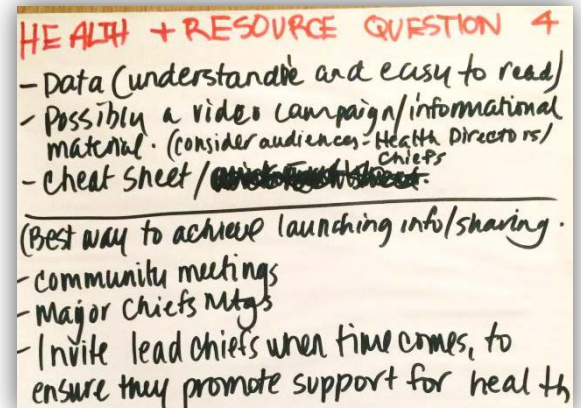 HEALTH + RESOURCE QUESTION 4
- Data (understandable and easy to read)
- Possibly a video campaign/informational
material. (consider audiences - Health Directors/
Chiefs
- Cheat sheet /
(Best way to achieve launching info/sharing.
- community meetings
- Major Chiefs Mtgs
- Invite lead chiefs when time comes, to
ensure they promote support for health